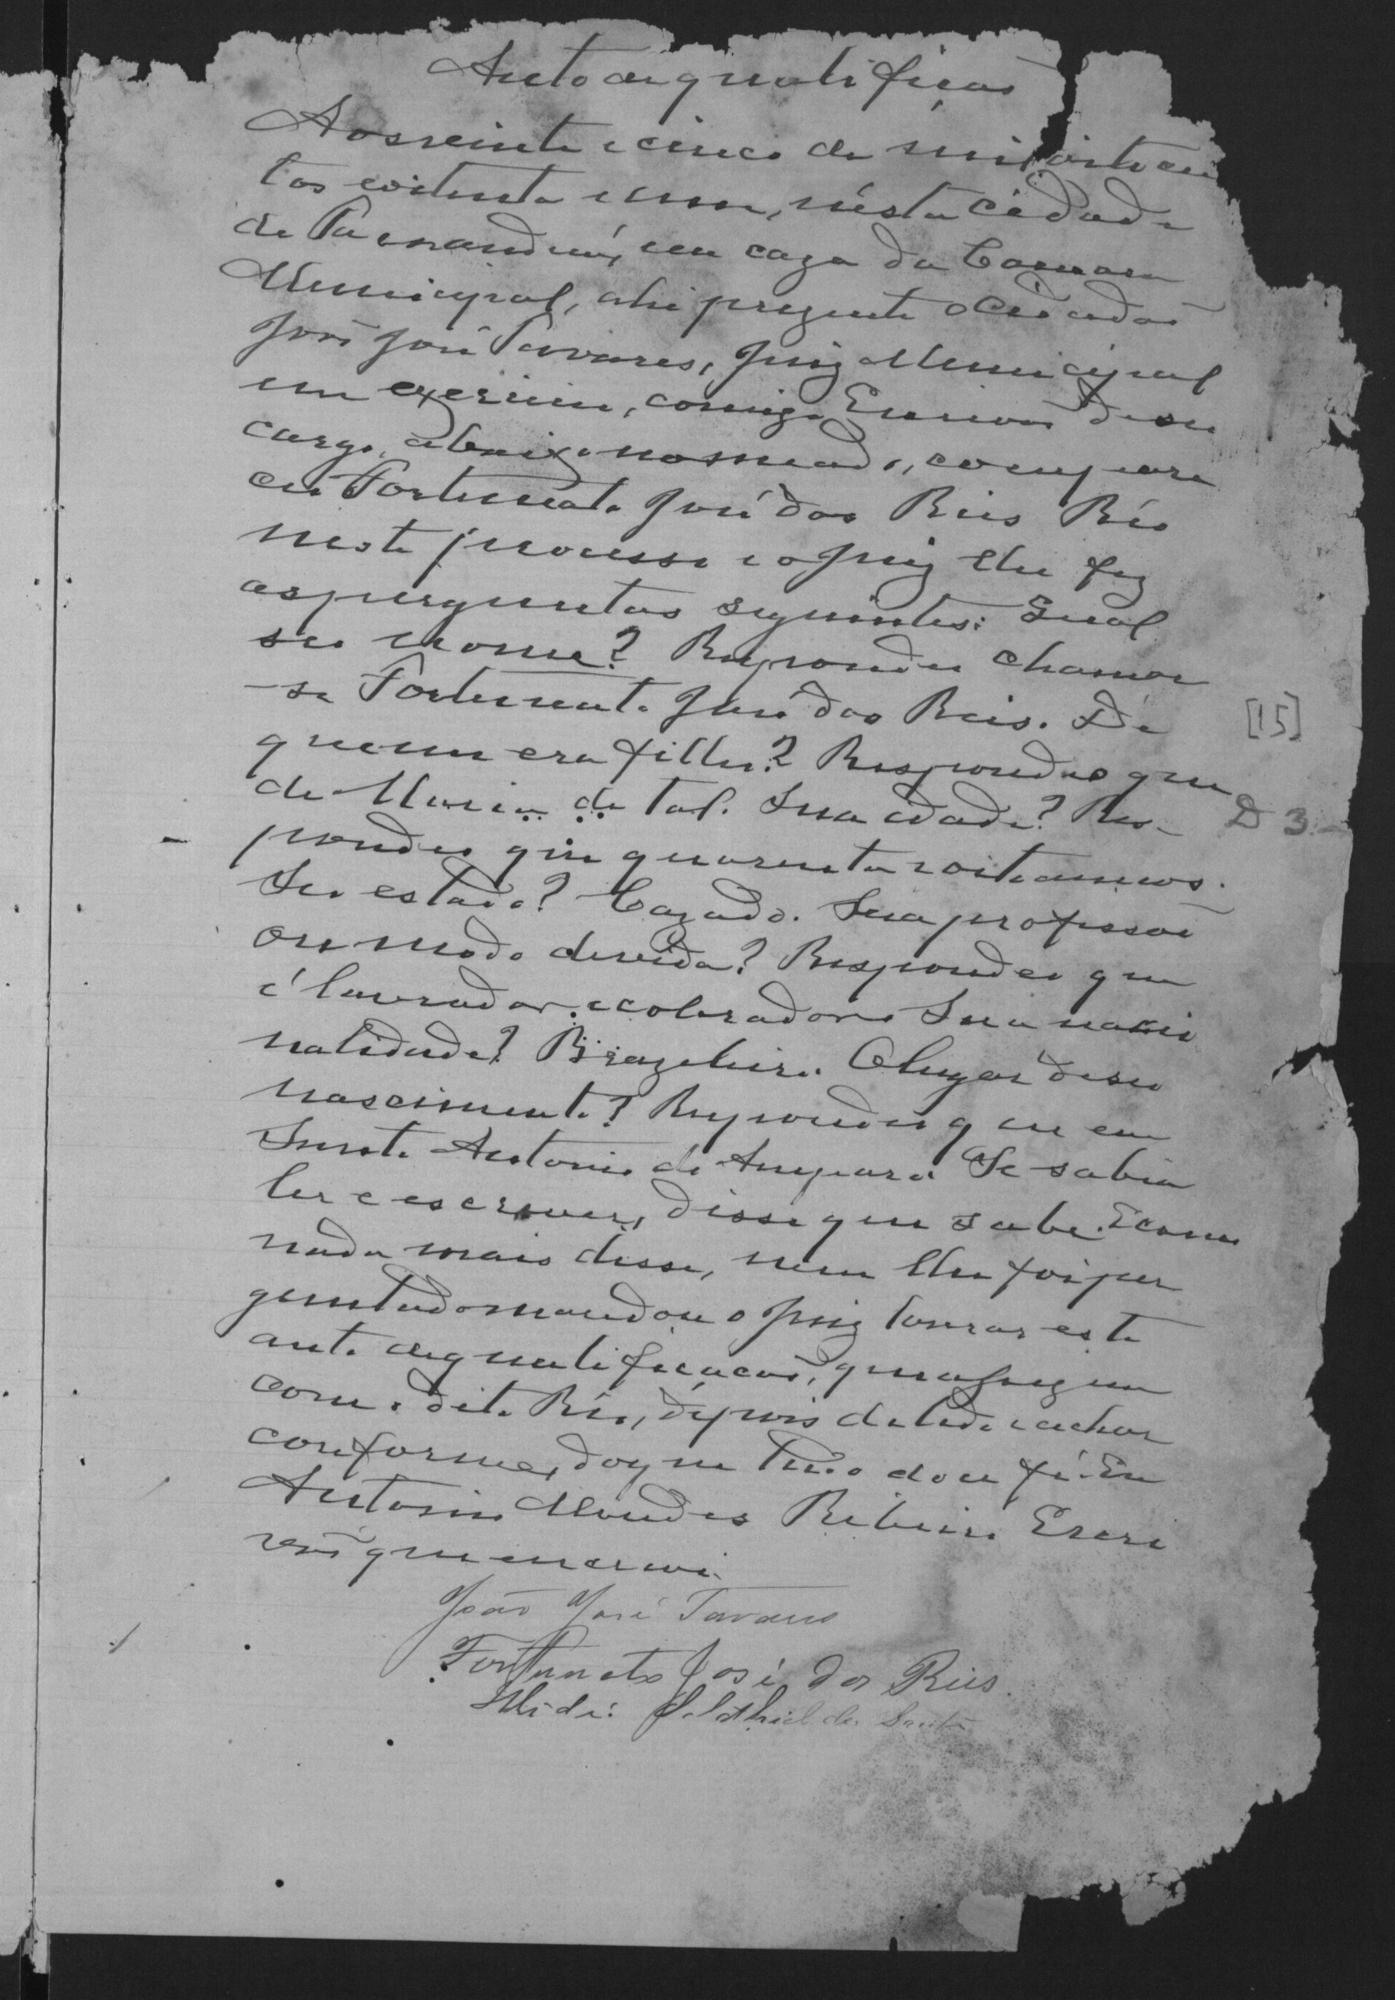 Auto de qualificaç
Aos vinte e cinco de mil oitocen
tos oitenta e um, nésta cidade
de Parnanduá, em caza da Camara
Municipal, ahi prezente o cidadaõ
João José Tavares, Juiz Municipal
em exercicio, comigo Escrivaõ de seu
cargo, abaixo nomeado, compare
ceu Fortunato José dos Reis Réo
neste processo e o Juiz lhe fez
as perguntas seguintes: Qual
seu nome? Respondeu chamar
-se Fortunato José dos Reis. De
quem era filho? Respondeo que
de Maria de tal. Sua idade? Res-
pondeo que quarenta e oito annos.
Seu estado? Cazado. Sua profissaõ
ou modo de vida? Respondeo que
é lavrador e cobrador. Sua nacio
nalidade? Brazileiro. O lugar de seu
nascimento? Respondeo que em
Santo Antonio do Amparo. Se sabia
ler e escrever, disse que sabe. E como
nada mais disse, nem lhe foi per
guntado mandou o Juiz lavrar este
auto de qualificaçaõ, que assigna
com o dito Réo, depois de lido e achar
conforme, do que tudo dou fé. Eu
Antonio Mendes Ribeiro Escri
vaõ que escrevi.
João José Tavares
Fortunato José dos Reis
[15]
D 3